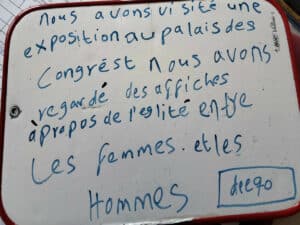 nous avons visité une
exposition au palais des
Congrést nous avons
regardé des affiches
àpropos de l'eglité entre
Les femmes. et les
Hommes
deego